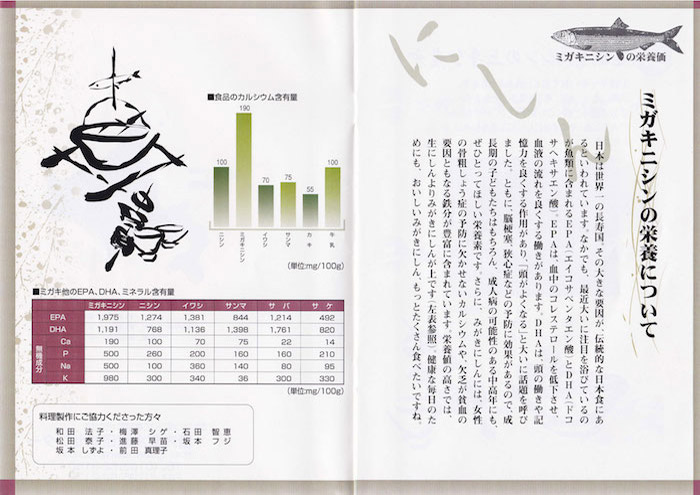 ミガキニシンの栄養価
ミガキニシンの栄養について
日本は世界一の長寿国。その大きな要因が、伝統的な日本食にあ
るといわれています。なかでも、最近大いに注目を浴びているの
が魚類に含まれるEPA(エイコサペンタエン酸)とDHA(ドコ
サヘキサエン酸)。EPAは、血中のコレステロールを低下させ、
血液の流れを良くする働きがあります。DHAは、頭の働きや記
憶力を良くする作用があり、「頭がよくなる」と大いに話題を呼び
ました。ともに、脳梗塞、狭心症などの予防に効果があるので、成
長期の子どもたちはもちろん、成人病の可能性のある中高年にも、
ぜひとってほしい栄養素です。さらに、みがきにしんには、女性
の骨粗しょう症の予防に欠かせないカルシウムや、欠乏が貧血の
要因ともなる鉄分が豊富に含まれています。栄養価の高さでは、
生にしんよりみがきにしんが上です(左表参照)。健康な毎日のた
めにも、おいしいみがきにしん、もっとたくさん食べたいですね。
■食品のカルシウム含有量
100 190 70 75 55 100
ニシン ミガキニシン イワシ サンマ カキ 牛乳
(単位:mg/100g)
■ミガキ他のEPA、DHA、ミネラル含有量
ミガキニシン ニシン イワシ サンマ サバ サケ
EPA 1,975 1,274 1,381 844 1,214 492
DHA 1,191 768 1,136 1,398 1,761 820
無機成分
Ca 190 100 70 75 22 14
P 500 260 200 160 160 210
Na 500 100 360 140 80 95
K 980 300 340 36 300 330
(単位:mg/100g)
料理製作にご協力くださった方々
和田 法子・梅澤 シゲ・石田 智恵
松田 泰子・進藤 早苗・坂本 フジ
坂本 しずよ・前田 真理子